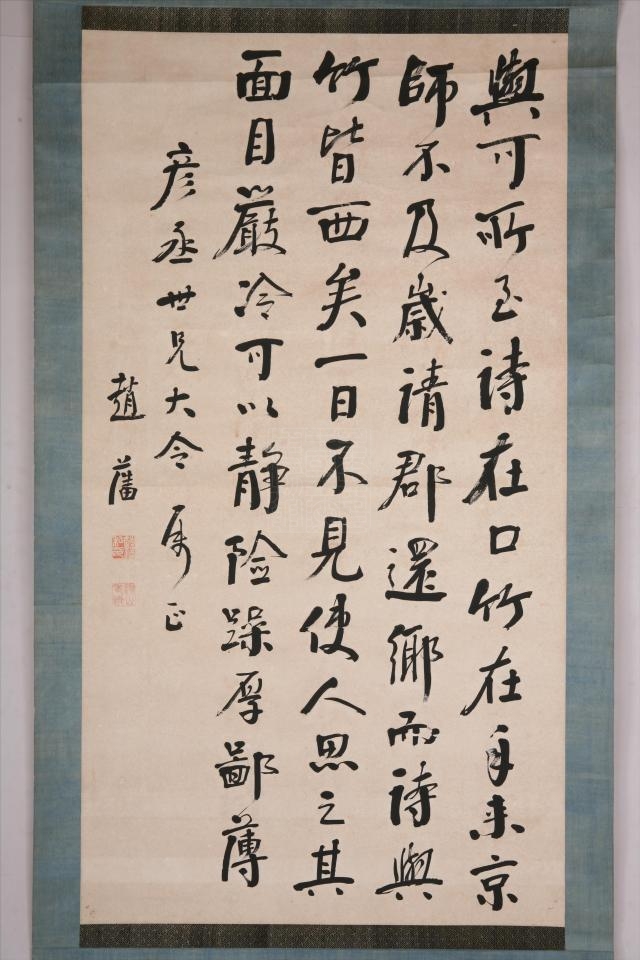 與可所至詩在口竹在手來京
師不及歲請郡還鄉而詩與
竹皆西矣一日不見使人思之其
面目嚴冷可以靜險躁厚鄙薄
彥丞世兄大令属正
趙藩